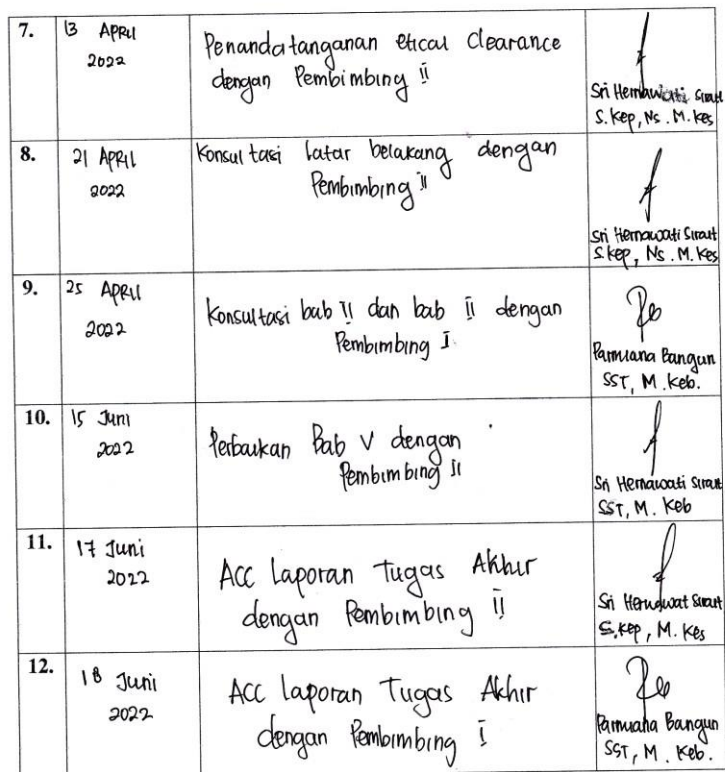 7.
13 April
2022
Penandatanganan etical Clearance
dengan Pembimbing II
Sri Hernawati Sirait
S.Kep, Ns. M.Kes
8.
21 April
2022
Konsultasi latar belakang dengan
Pembimbing II
Sri Hernawati Sirait
S.Kep, Ns. M.Kes
9.
25 April
2022
Konsultasi bab II dan bab II dengan
Pembimbing I
Parmiana Bangun
SST, M.Keb.
10.
15 Juni
2022
Perbaikan Bab V dengan
Pembimbing II
Sri Hernawati Sirait
SST, M.Keb
11.
17 Juni
2022
ACC Laporan Tugas Akhir
dengan Pembimbing II
Sri Hernawat Sirait
S.Kep, M.Kes
12.
18 Juni
2022
ACC Laporan Tugas Akhir
dengan Pembimbing I
Parmiana Bangun
SST, M.Keb.